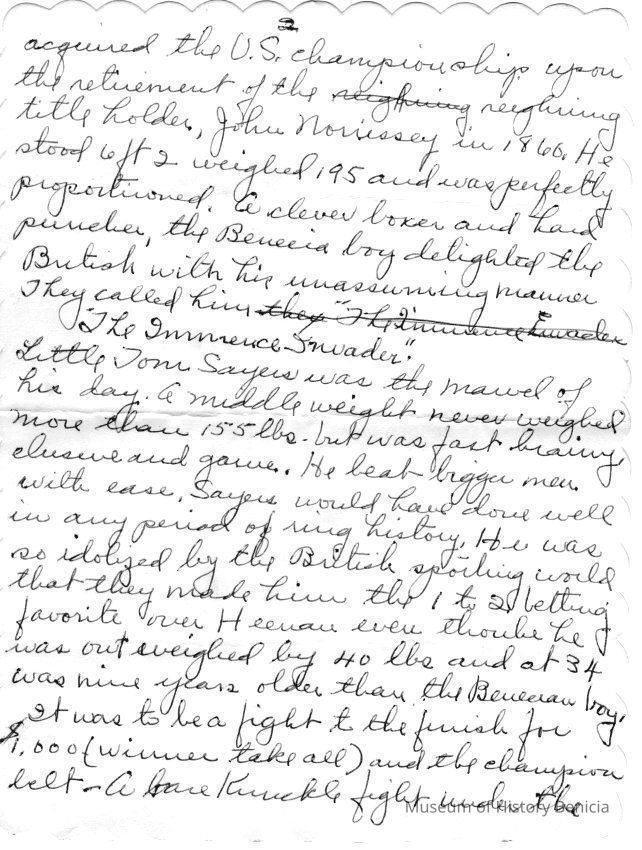 2
acquired the U.S. championship upon
the retirement of the reighning reighning
title holder, John Morrissey in 1860. He
stood 6 ft 2 weighed 195 and was perfectly
proportioned. A clever boxer and hard
puncher, the Benecia boy delighted the
British with his unassuming manner
They called him they "The Immence Invader
"The Immence Invader".
Little Tom Sayers was the marvel of
his day. A middle weight never weighed
more than 155 lbs. but was fast brainy,
elusive and game. He beat bigger men
with ease, Sayers would have done well
in any period of ring history. He was
so idolized by the British sporting world
that they made him the 1 to 2 betting
favorite over Heenan even thouhe he
was out weighed by 40 lbs and at 34
was nine years older than the Benecian boy.
It was to be a fight to the finish for
$1,000 (winner take all) and the champion
belt - A bare Knuckle fight under the
Museum of History Benicia